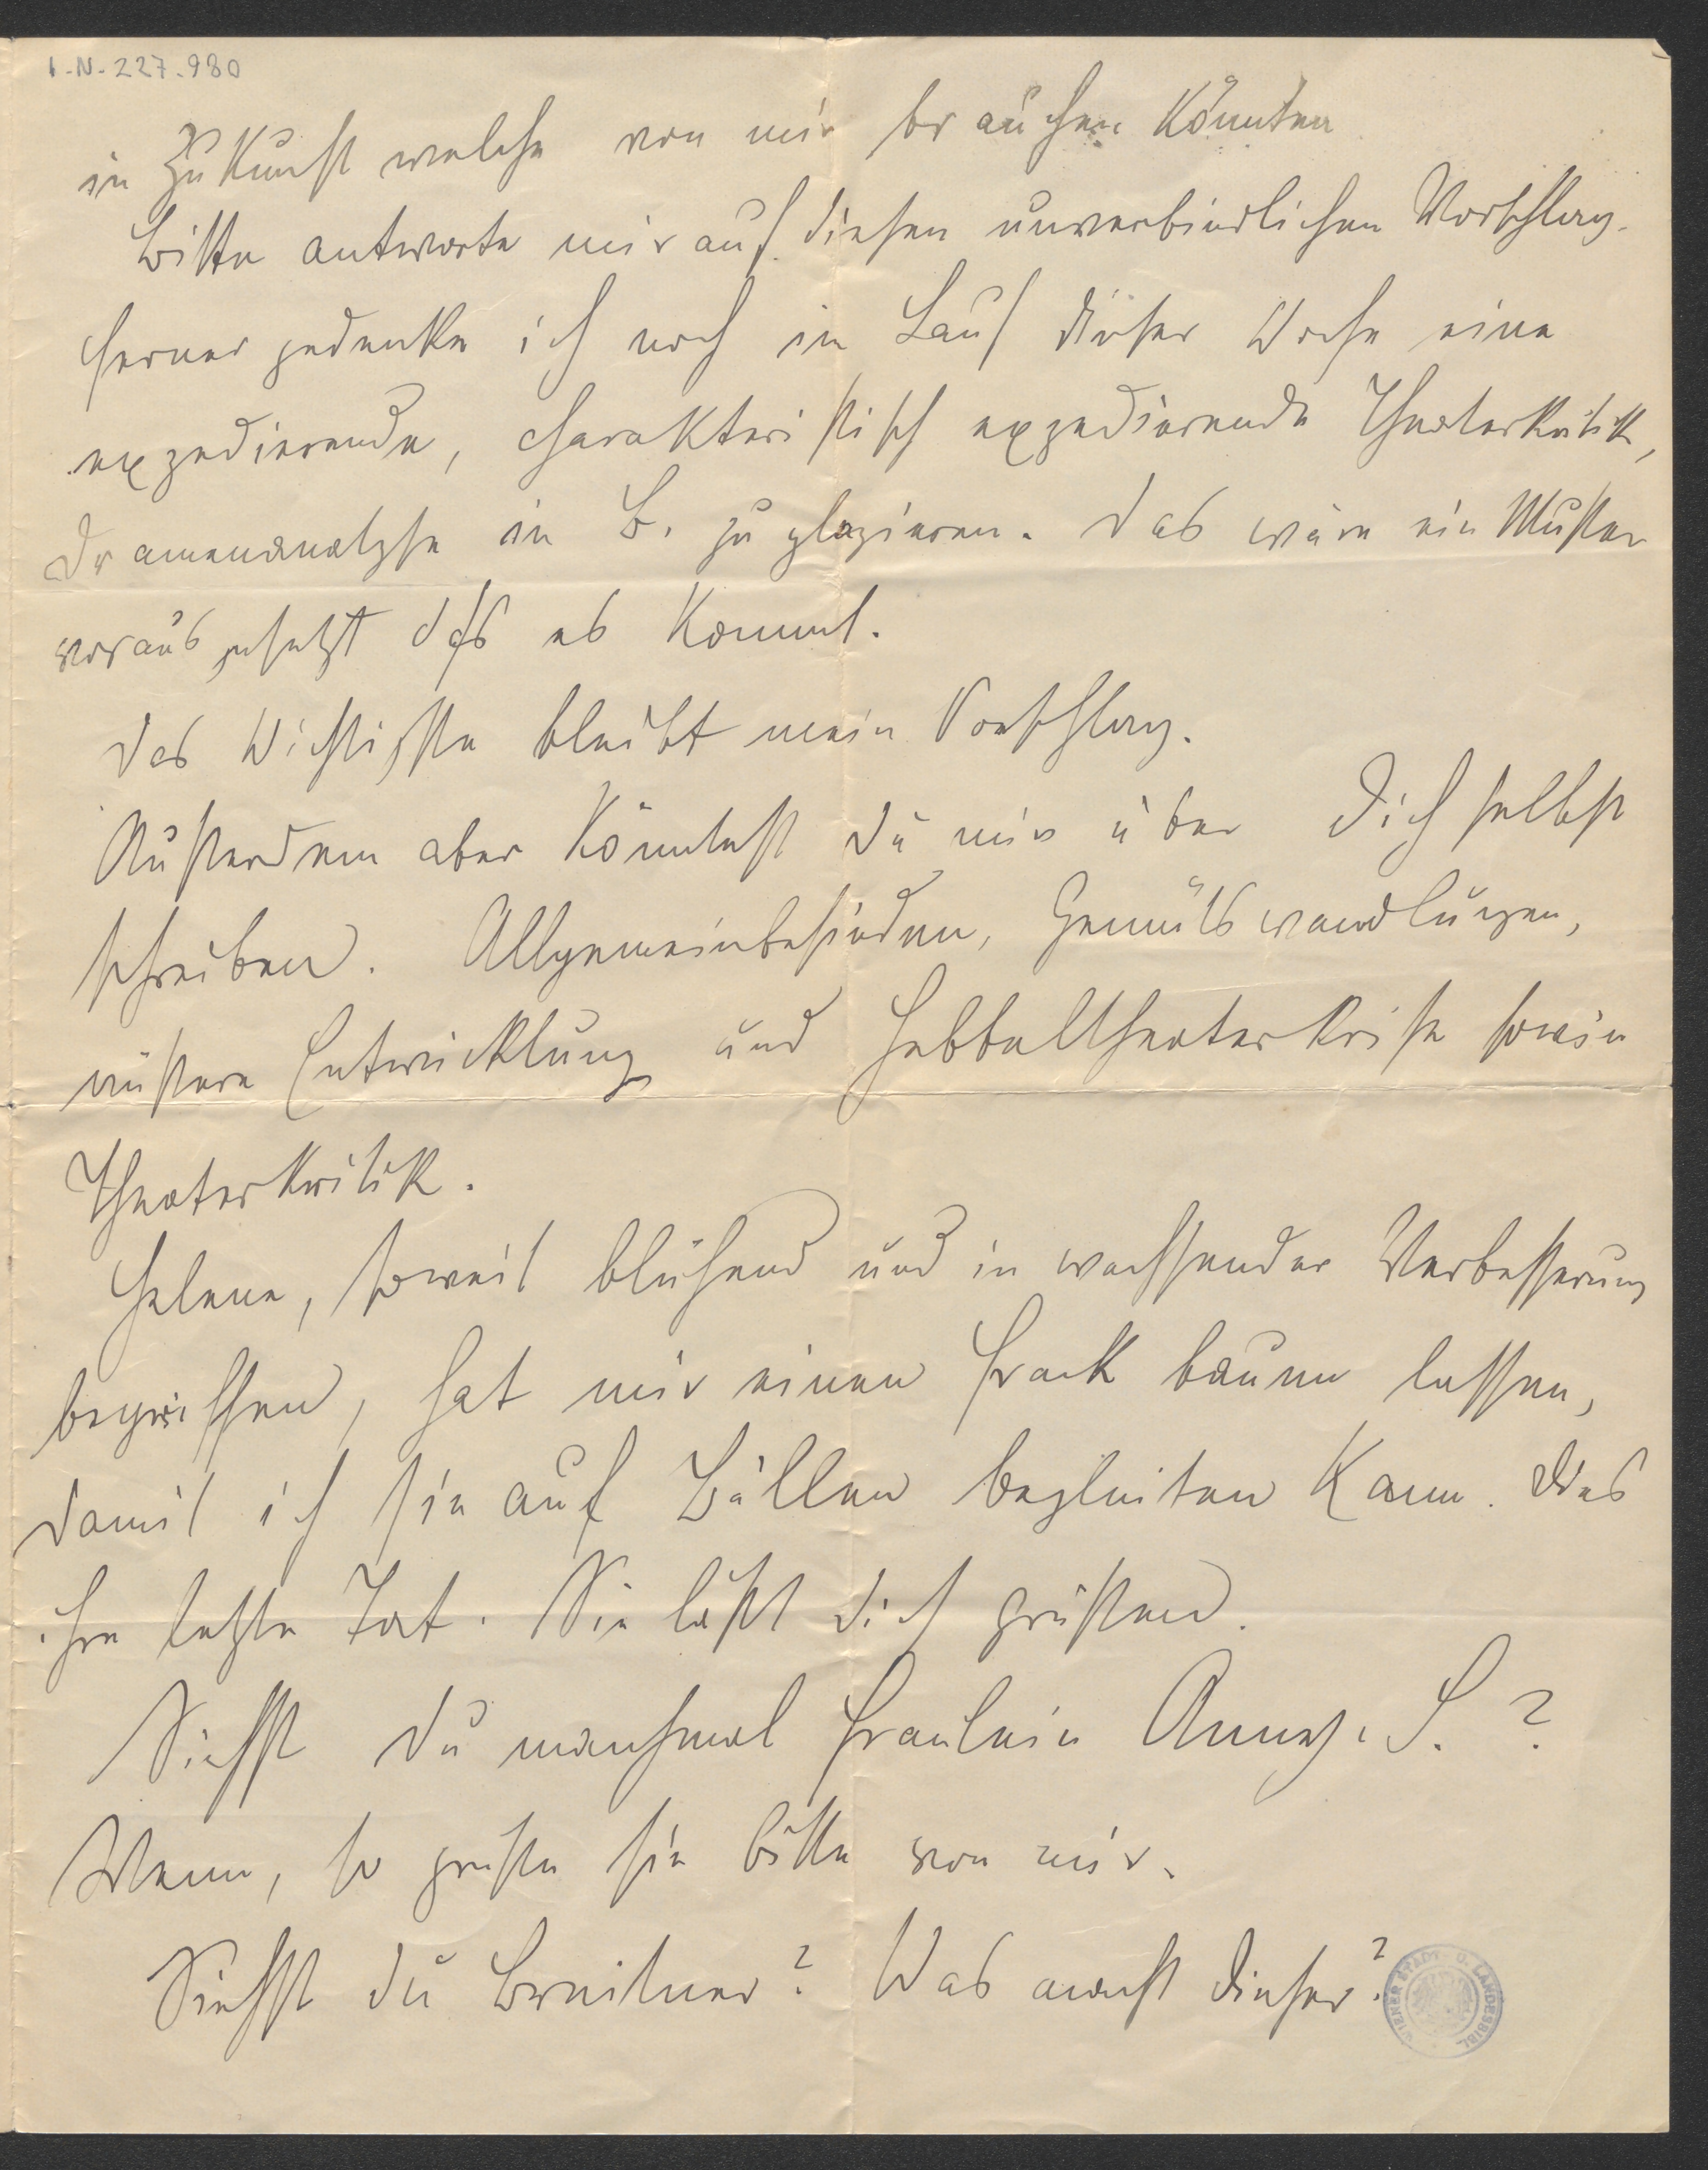 I-N-227.980
in Zukunft welche von mir brauchen könnten
Bitte antworte mir auf diesen unverbindlichen Vorschlag.
Ferner gedenke ich noch im Lauf dieser Woche eine
exzedierende, charakteristisch exzedierende Theaterkritik,
Dramenanalyse in B. zu plazieren. Das wäre ein Muster
vorausgesetzt dass es kommt.
Das Wichtigste bleibt mein Vorschlag.
Außerdem aber könntest du mir über Dich selbst
schreiben. Allgemeinbefinden, Gemütswandlungen,
äußere Entwicklung und Hebbeltheaterkrise sowie
Theaterkritik.
Helene, soweit blühend und in wachsender Verbesserung
begriffen, hat mir einen Frack bauen lassen,
damit ich sie auf Bällen begleiten kann. Das
ihre letzte Tat. Sie läßt dich grüßen.
Siehst du manchmal Fraulein Anny. S.?
Wenn, so grüße sie bitte von mir.
Siehst du Breitner? Was macht dieser?
WIENER STADT- U. LANDESBIBL.